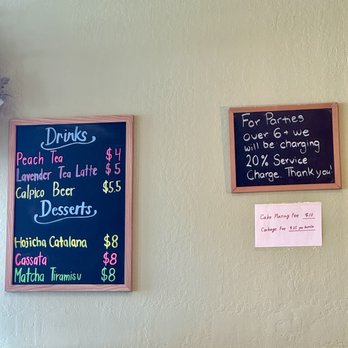 Drinks
Peach Tea $4
Lavender Tea Latte $5
Calpico Beer $5.5
Desserts
Hojicha Catalana $8
Cassata $8
Matcha Tiramisu $8
For Parties
over 6+ we
will be charging
20% Service
Charge. Thank you!
Cake Plating Fee
Corkage Fee $25 per bottle